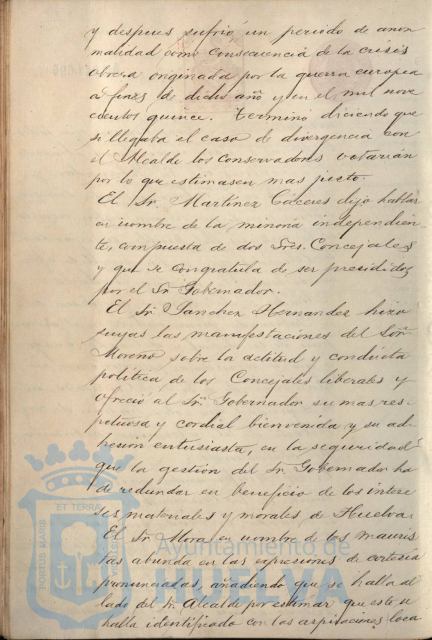 y despues sufrió un periodo de anor
malidad como consecuencia de la crisis
obrera originada por la guerra europea
a fines de dicho año y en el mil nove
cientos quince. Terminó diciendo que
si llegaba el caso de divergencia con
el Alcalde los conservadores votarian
por lo que estimasen mas justo.
El Sr. Martinez Caceres dijo hablar
en nombre de la minoria independien
te, compuesta de dos Sres. Concejales
y que se congratula de ser presididos
por el Sr. Gobernador.
El Sr. Sanchez Hernandez hizo
suyas las manifestaciones del Señor
Moreno sobre la actitud y conducta
politica de los Concejales liberales y
ofreció al Sr. Gobernador su mas res
petuosa y cordial bienvenida y su ad
hesion entusiasta, en la seguridad
que la gestión del Sr. Gobernador ha
de redundar en beneficio de los intere
ses materiales y morales de Huelva.
El Sr. Mora en nombre de los mauris
tas abunda en las expresiones de cortesia
pronunciadas, añadiendo que se halla al
lado del Sr. Alcalde por estimar que este se
halla identificado con las aspiraciones loca
PORTUS MARIS ET TERRAE
Ayuntamiento de
HUELVA